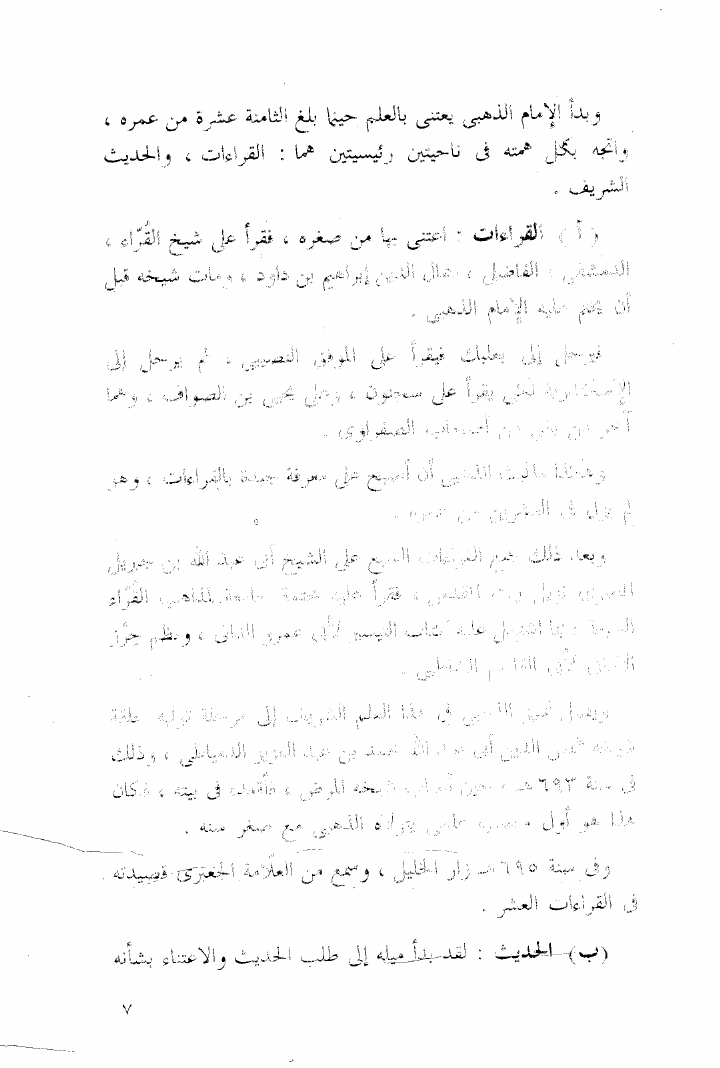 وبدأ الإمام الذهبى يعتنى بالعلم حينما بلغ الثامنة عشرة من عمره ،
واتجه بكل همته فى ناحيتين رئيسيتين هما : القراءات ، والحديث
الشريف .
( أ ) القراءات : اعتنى بها من صغره ، فقرأ على شيخ القُرّاء ،
الدمشقى ، الفاضلى ، جمال الدين إبراهيم بن داود ، ومات شيخه قبل
أن يختم عليه الإمام الذهبى .
فيرحل إلى بعلبك فيقرأ على الموفق النصيبى ، ثم يرحل إلى
الإسكندرية لكى يقرأ على سحنون ، وعلى يحيى بن الصواف ، وهما
آخر من بقى من أصحاب الصفراوى .
وهكذا الذهبى أن أصبح على معرفة جيدة بالقراءات ، وهو
لم يزل فى العشرين من عمره .
وبعد ذلك جمع القراءات السبع على الشيخ أبى عبد الله بن جبريل
المصرى نزيل بيت المقدس ، فقرأ عليه ختمة جامعة لمذاهب القُرّاء
السبعة بما اشتمل عليه كتاب التيسير لأبى عمرو الدانى ، ونظم حرز
الأمانى لأبى القاسم الشاطبى .
ويصل الذهبى فى هذا العلم الشريف إلى مرحلة توليه حلقة
شيخه شمس الدين أبى عبد الله محمد بن عبد العزيز الدمياطى ، وذلك
فى سنة ٦٩٣ هـ حين أصاب شيخه المرض ، فأقعده فى بيته ، فكان
هذا هو أول منصب علمى يتولاه الذهبى مع صغر سنه .
وفى سنة ٦٩٥ هـ زار الخليل ، وسمع من العلّامة الجعبرى قصيدته
فى القراءات العشر .
(ب) الحديث : لقد بدأ ميله إلى طلب الحديث والاعتناء بشأنه
٧